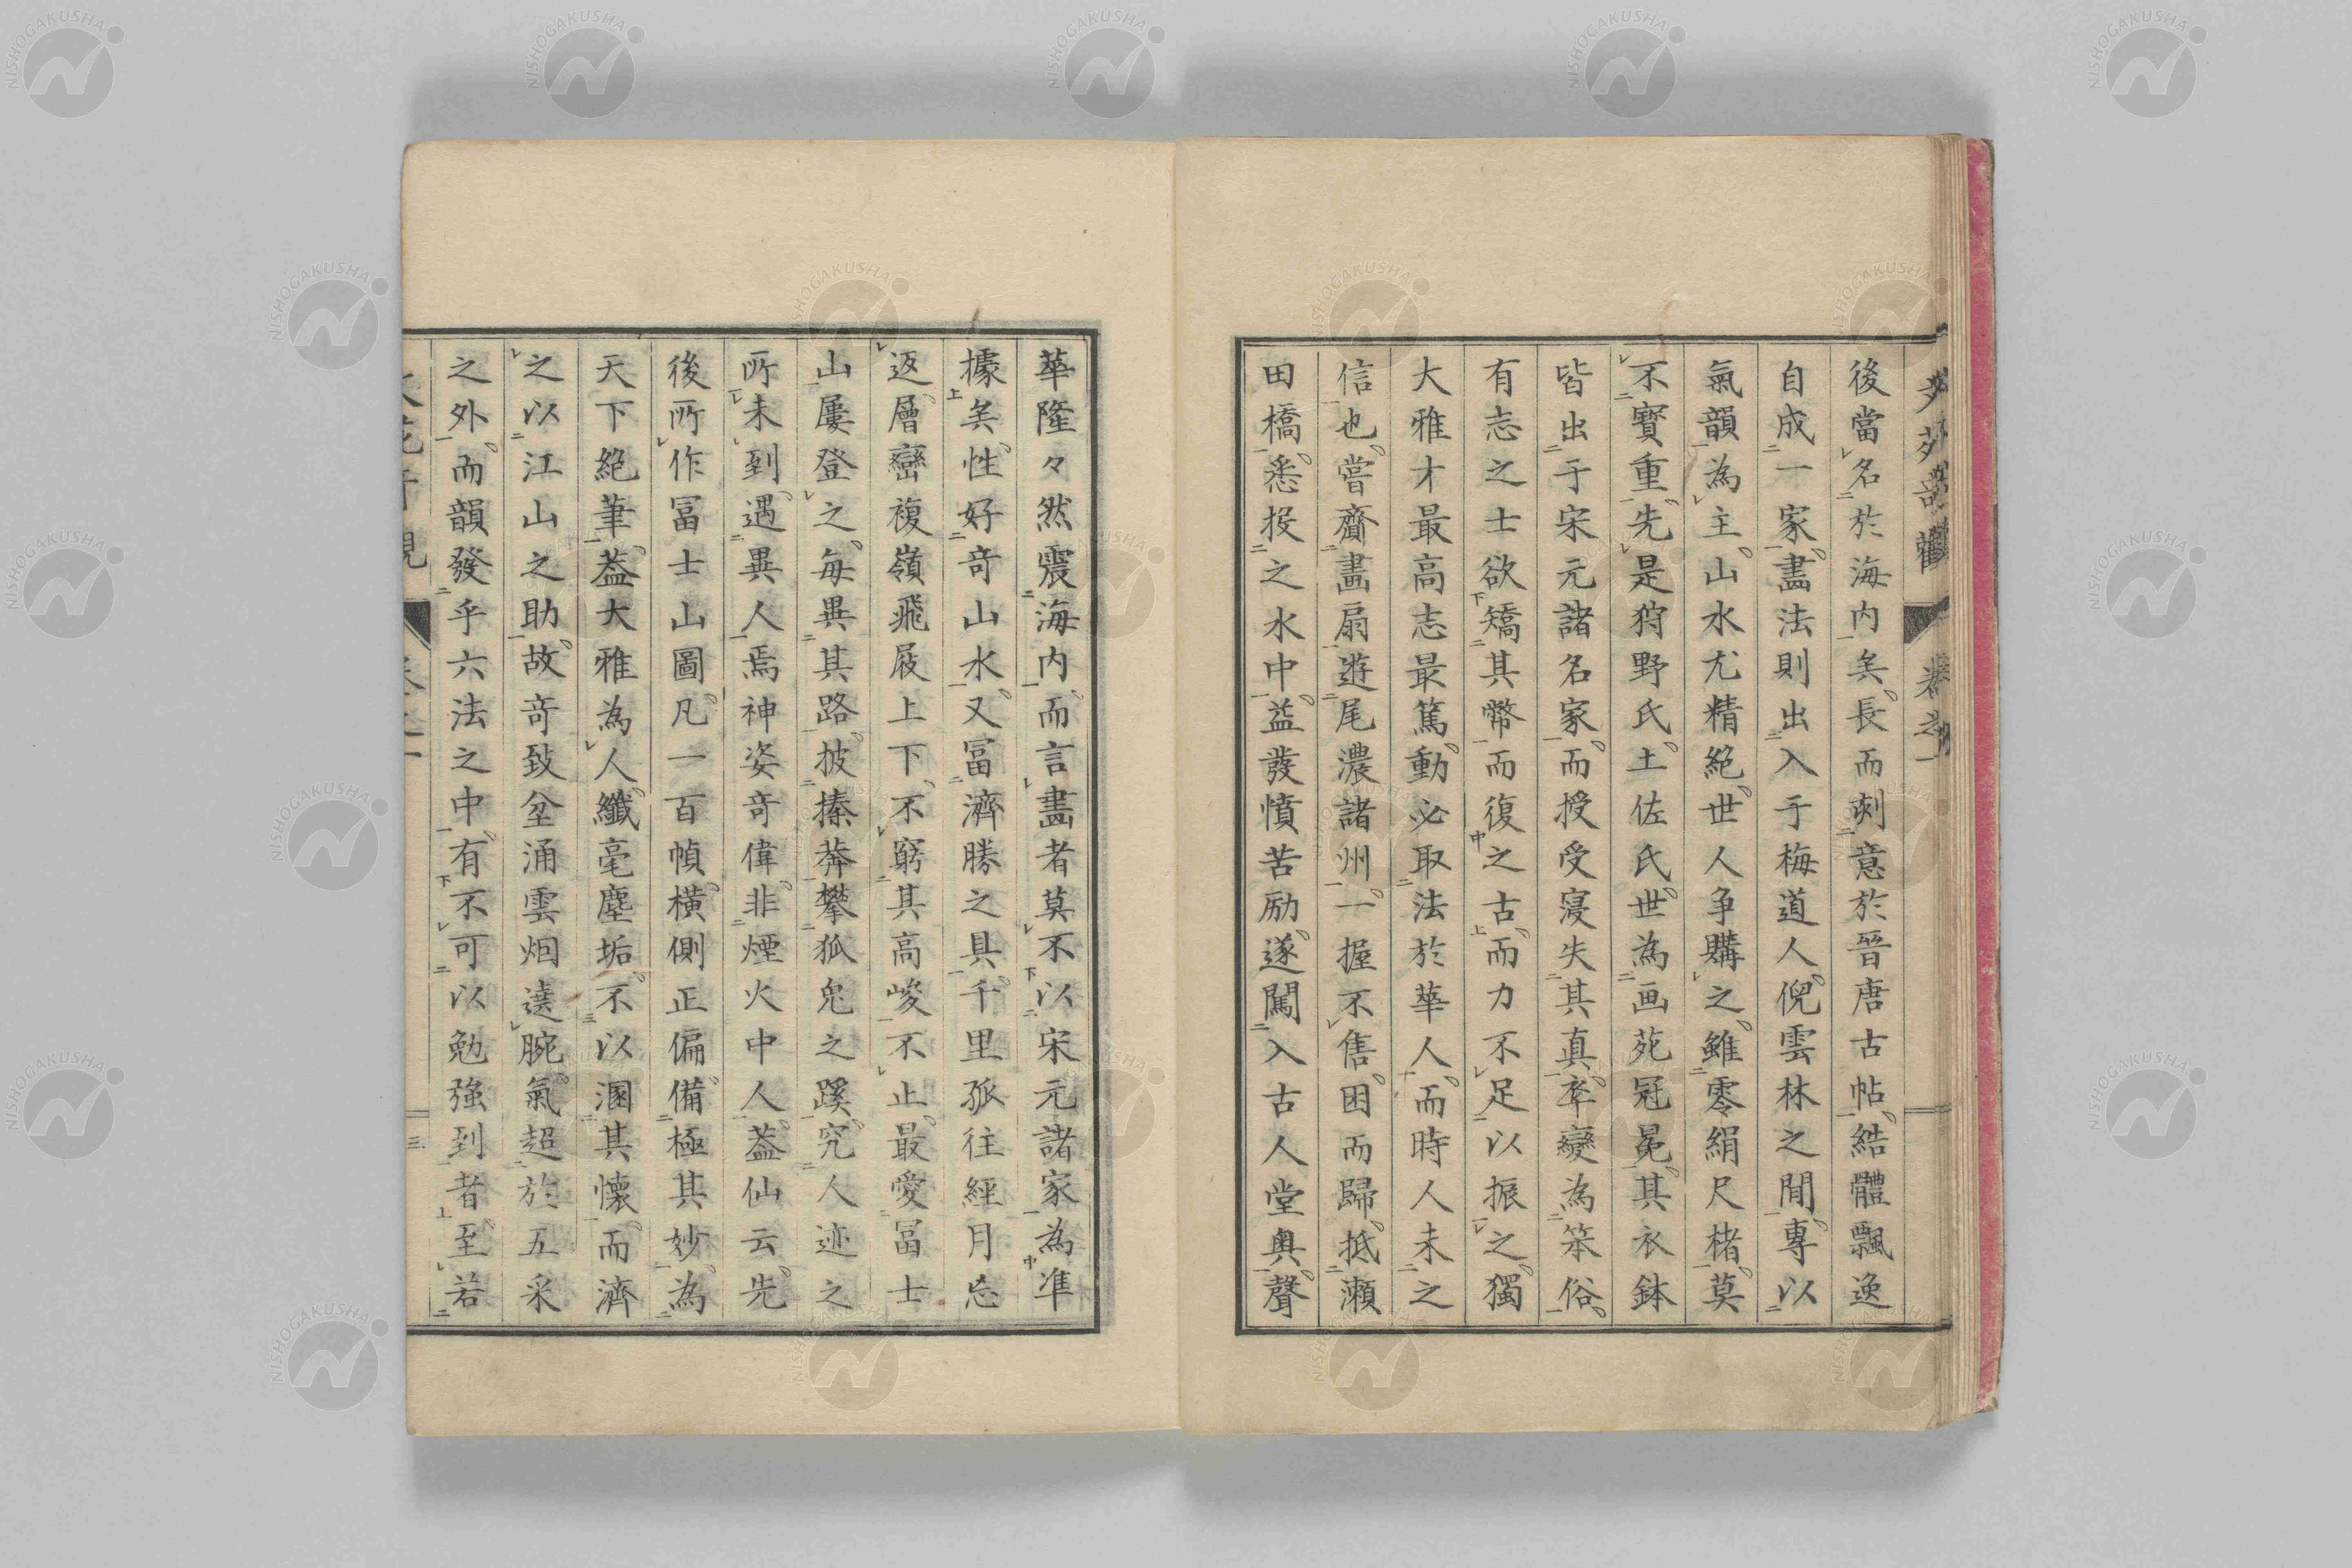 後當名於海内矣長而刻意於晉唐古帖結體飄逸
自成一家畫法則出入于梅道人倪雲林之間專以
氣韻為主山水尤精絶世人争購之雖零絹尺楮莫
不寳重先是狩野氏土佐氏世為画苑冠冕其衣鉢
皆出于宋元諸名家而授受寖失其真率變為笨俗
有志之士欲矯其幣而復之古而力不足以振之獨
大雅才最高志最篤動必取法於華人而時人未之
信也嘗齎畫扇遊尾濃諸州一握不售困而歸抵瀬
田橋悉投之水中益發憤苦励遂闖入古人堂奥聲
華隆々然震海内而言畫者莫不以宋元諸家為凖
據矣性好奇山水又冨濟勝之具千里孤往經月忘
返層巒複嶺飛屐上下不窮其高峻不止最愛冨士
山屢登之毎異其路披搸莽攀狐兎之蹊究人迹之
所未到遇異人焉神姿奇偉非煙火中人葢仙云先
後所作冨士山圖凡一百幀横側正偏備極其妙為
天下絶筆葢大雅為人纖毫塵垢不以溷其懷而濟
之以江山之助故奇致坌涌雲烟遶腕氣超於五采
之外而韻發乎六法之中有不可以勉強到者至若
卷之一
三
NISHOGAKUSHA